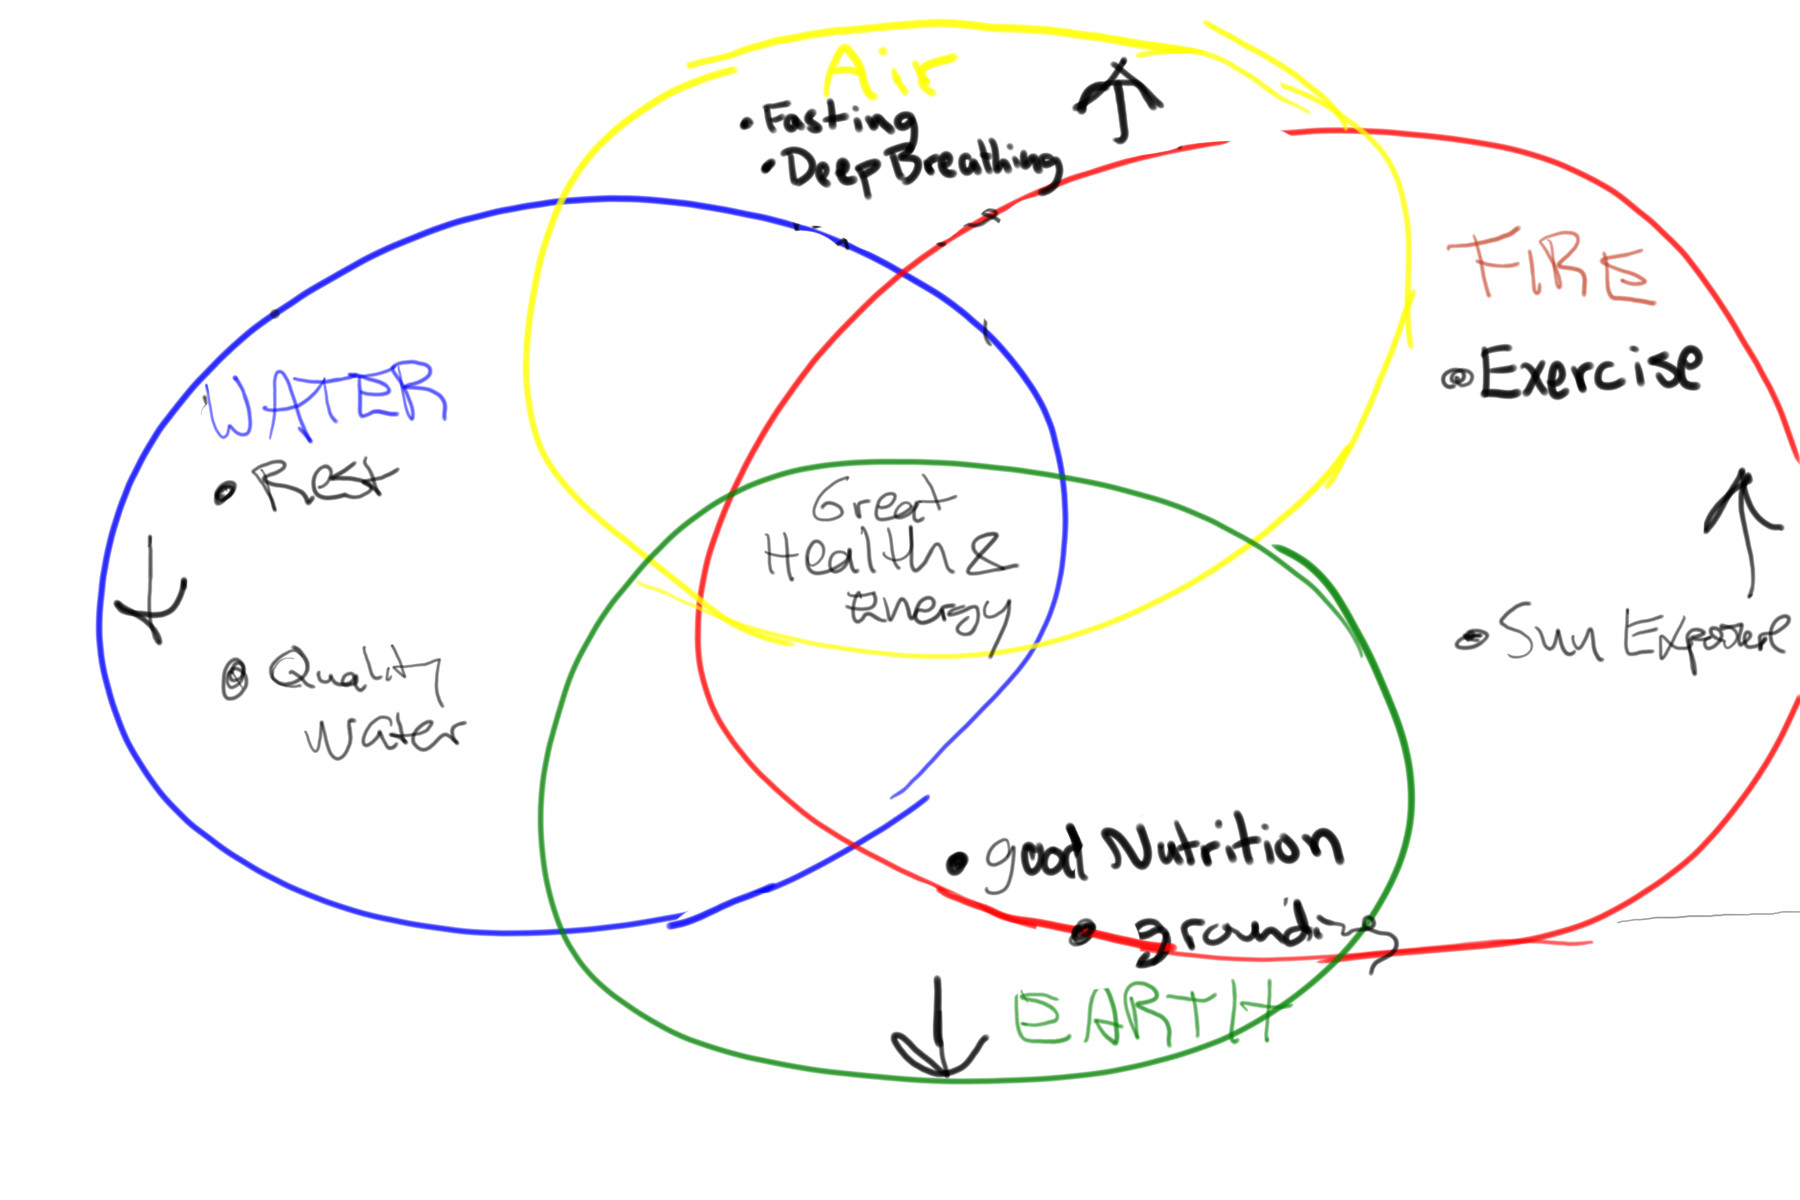 Air
• Fasting
• Deep Breathing
FIRE
• Exercise
WATER
• Rest
Great
Health &
Energy
• Sun Exposure
• Quality
Water
• good Nutrition
• grounding
EARTH